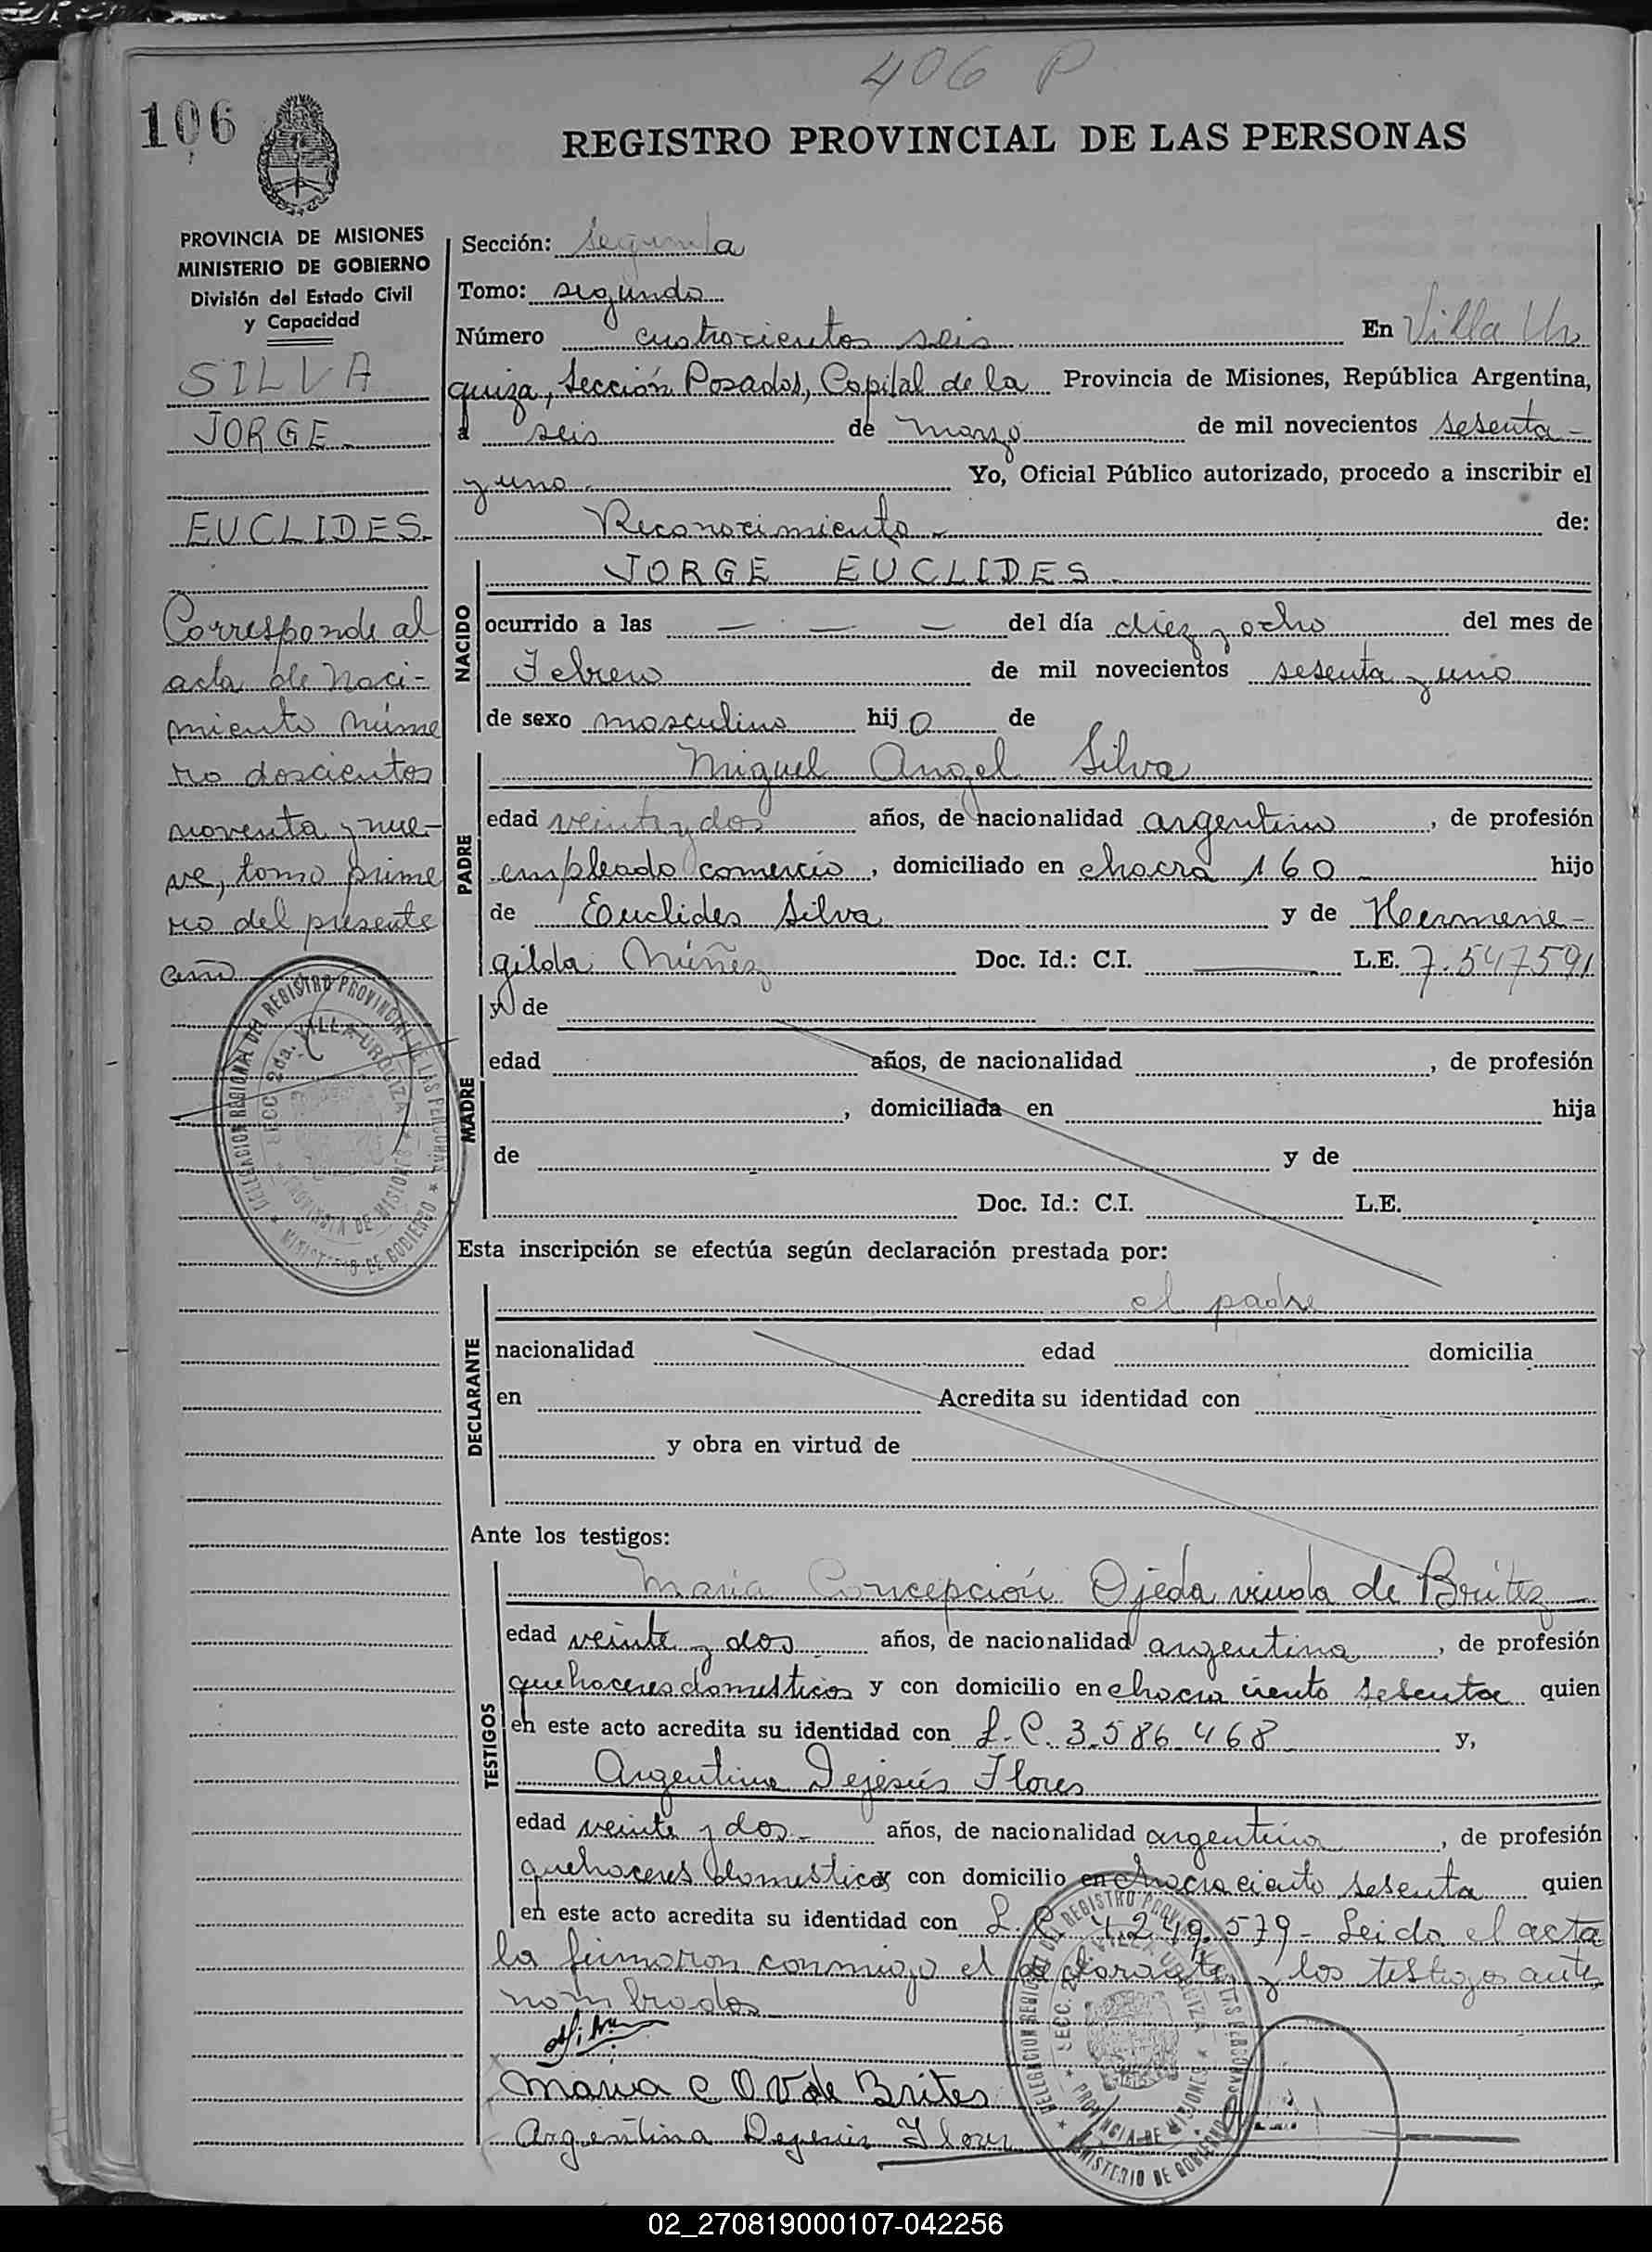 406 P
106
REGISTRO PROVINCIAL DE LAS PERSONAS
PROVINCIA DE MISIONES
MINISTERIO DE GOBIERNO
División del Estado Civil
y Capacidad
SILVA
JORGE
EUCLIDES
Corresponde al
acta de Naci-
miento núme
ro doscientos
noventa y nue-
ve, tomo prime
ro del presente
año
Sección: Segunda
Tomo: segundo
Número cuatrocientos seis En Villa Ur
quiza, Sección Posadas, Capital de la Provincia de Misiones, República Argentina,
a seis de marzo de mil novecientos sesenta -
y uno. Yo, Oficial Público autorizado, procedo a inscribir el
Reconocimiento de:
NACIDO
JORGE EUCLIDES
ocurrido a las — . — . — del día diez y ocho del mes de
Febrero de mil novecientos sesenta y uno
de sexo masculino hijo de
PADRE
Miguel Angel Silva
edad veinte y dos años, de nacionalidad argentino, de profesión
empleado comercio, domiciliado en chacra 160 hijo
de Euclides Silva y de Hermene-
gilda Núñez Doc. Id.: C.I. —— L.E. 7.547591
MADRE
y de
edad años, de nacionalidad , de profesión
, domiciliada en hija
de y de
Doc. Id.: C.I. L.E.
Esta inscripción se efectúa según declaración prestada por:
DECLARANTE
el padre
nacionalidad edad domicilia
en Acredita su identidad con
y obra en virtud de
Ante los testigos:
TESTIGOS
María Concepción Ojeda viuda de Brítez
edad veinte y dos años, de nacionalidad argentina, de profesión
quehaceres domesticos y con domicilio en chacra ciento sesenta quien
en este acto acredita su identidad con L.C. 3.586.468 y,
Argentina Dejesús Flores
edad veinte y dos años, de nacionalidad argentina, de profesión
quehaceres domesticos con domicilio en chacra ciento sesenta quien
en este acto acredita su identidad con L.C. 4.249.579 - Leida el acta
la firmaron conmigo el declarante y los testigos ante
nombrados
Maria C O V de Brites
Argentina Dejesus Flores
DELEGACION REGIONAL DEL REGISTRO PROVINCIAL DE LAS PERSONAS
SECC. 2da. VILLA URQUIZA
PROVINCIA DE MISIONES
MINISTERIO DE GOBIERNO
DELEGACION REGIONAL DEL REGISTRO PROVINCIAL DE LAS PERSONAS
SECC. 2da. VILLA URQUIZA
PROVINCIA DE MISIONES
MINISTERIO DE GOBIERNO
02_270819000107-042256